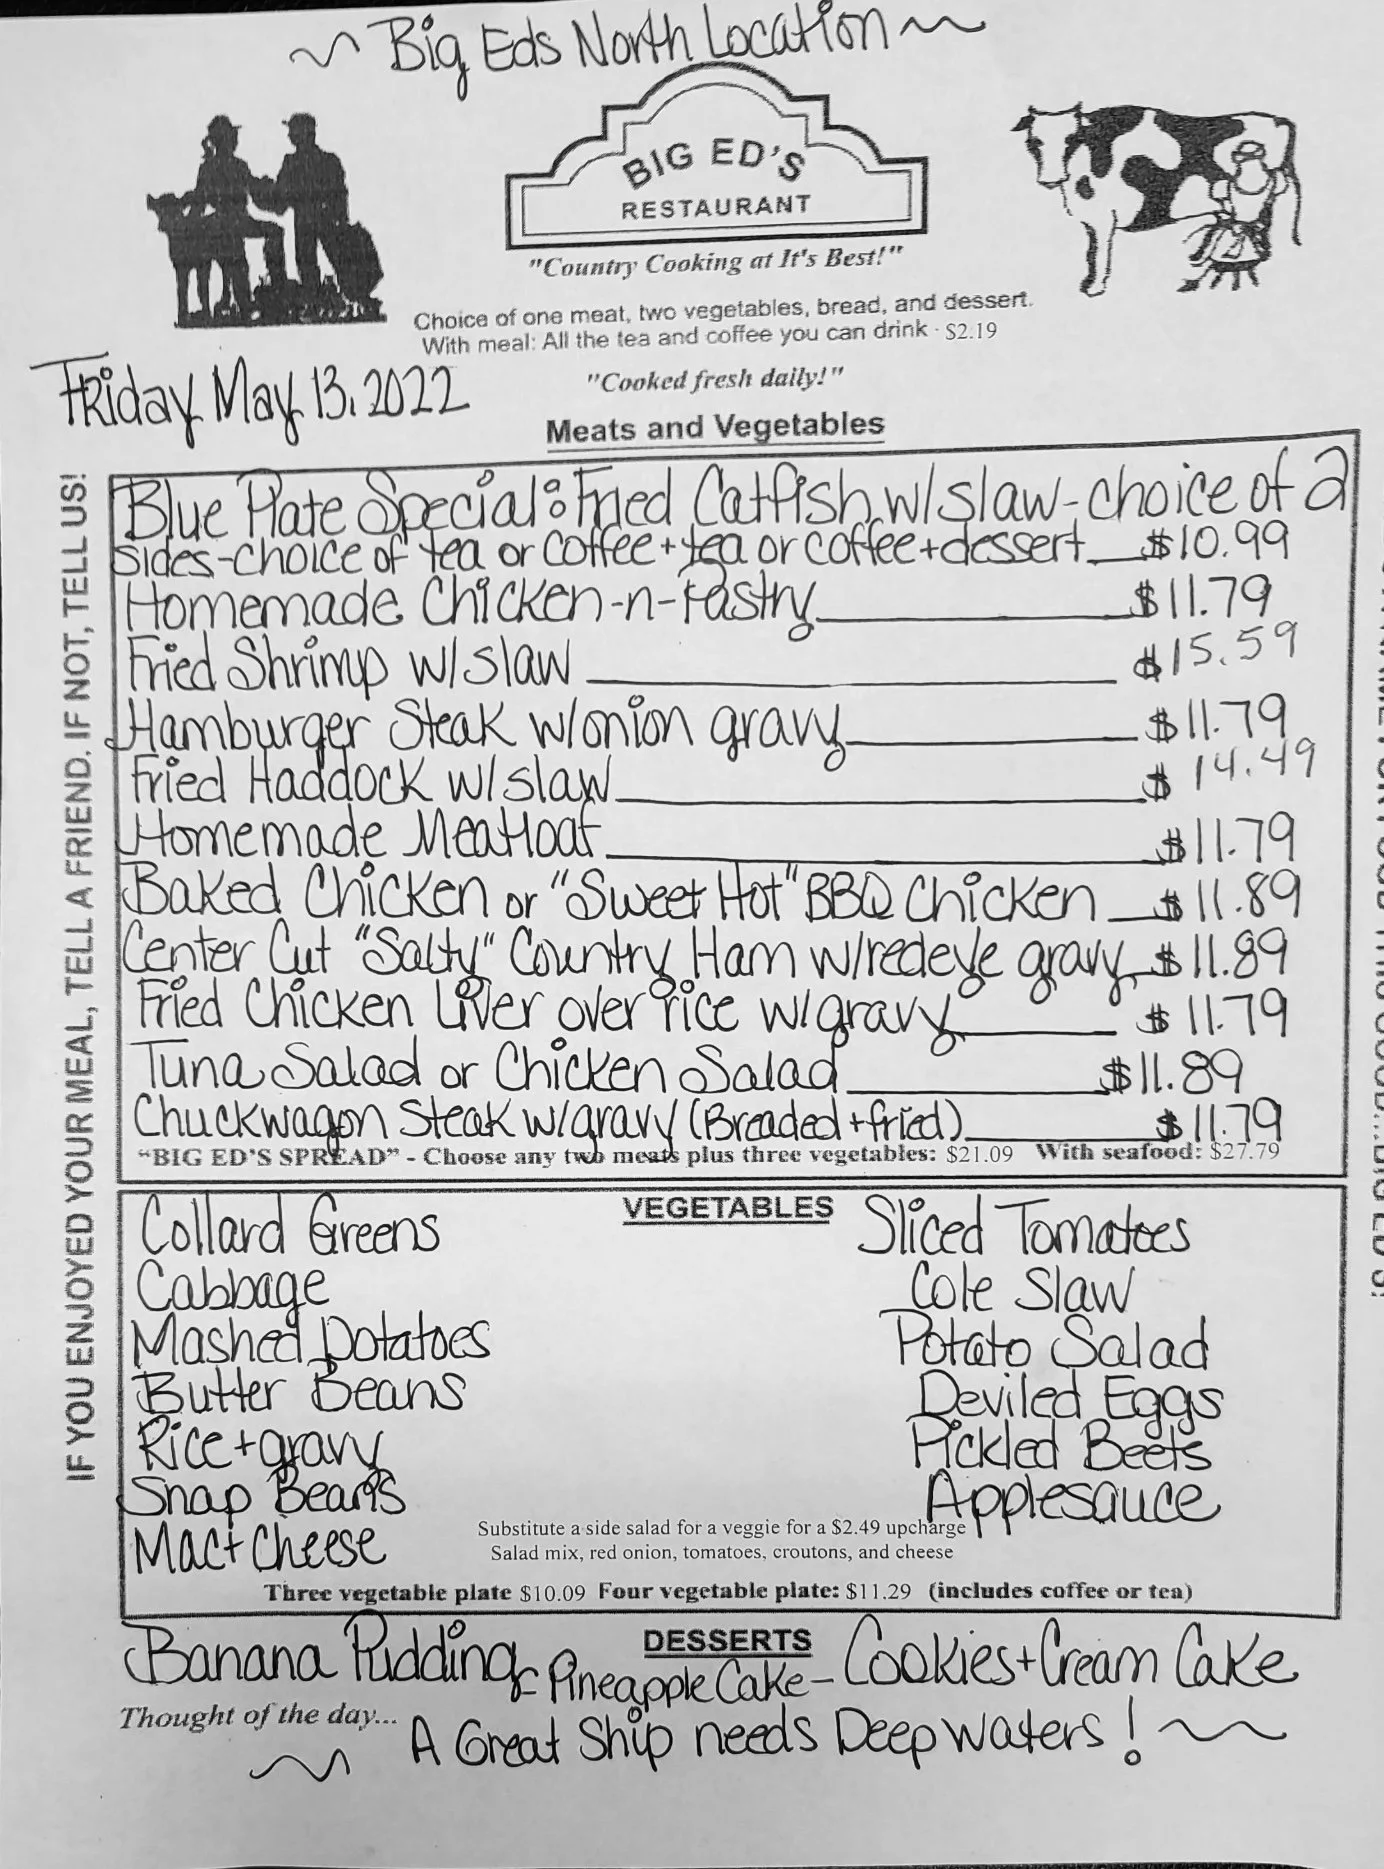 ~ Big Eds North Location ~
BIG ED'S
RESTAURANT
"Country Cooking at It's Best!"
Choice of one meat, two vegetables, bread, and dessert.
With meal: All the tea and coffee you can drink - $2.19
Friday May 13, 2022
"Cooked fresh daily!"
Meats and Vegetables
IF YOU ENJOYED YOUR MEAL, TELL A FRIEND. IF NOT, TELL US!
Blue Plate Special: Fried Catfish w/slaw - choice of 2
sides - choice of tea or coffee + tea or coffee + dessert $10.99
Homemade Chicken-n-Pastry $11.79
Fried Shrimp w/slaw $15.59
Hamburger Steak w/onion gravy $11.79
Fried Haddock w/slaw $14.49
Homemade Meatloaf $11.79
Baked Chicken or "Sweet Hot" BBQ Chicken $11.89
Center Cut "Salty" Country Ham w/redeye gravy $11.89
Fried Chicken Liver over rice w/gravy $11.79
Tuna Salad or Chicken Salad $11.89
Chuckwagon Steak w/gravy (Breaded + fried) $11.79
"BIG ED'S SPREAD" - Choose any two meats plus three vegetables: $21.09 With seafood: $27.79
VEGETABLES
Collard Greens
Cabbage
Mashed Potatoes
Butter Beans
Rice + gravy
Snap Beans
Mac + Cheese
Sliced Tomatoes
Cole Slaw
Potato Salad
Deviled Eggs
Pickled Beets
Applesauce
Substitute a side salad for a veggie for a $2.49 upcharge
Salad mix, red onion, tomatoes, croutons, and cheese
Three vegetable plate $10.09 Four vegetable plate: $11.29 (includes coffee or tea)
DESSERTS
Banana Pudding - Pineapple Cake - Cookies + Cream Cake
Thought of the day...
~ A Great Ship needs Deep Waters! ~